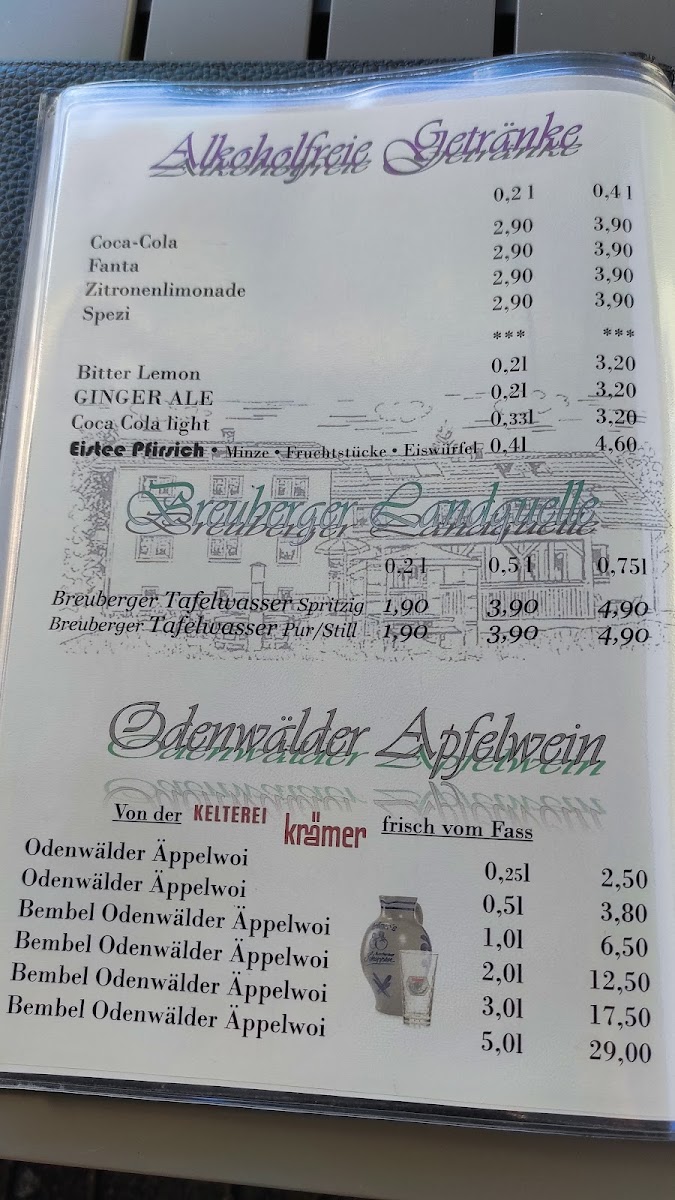 Alkoholfreie Getränke
0,2 l 0,4 l
Coca-Cola 2,90 3,90
Fanta 2,90 3,90
Zitronenlimonade 2,90 3,90
Spezi 2,90 3,90
*** ***
Bitter Lemon 0,2l 3,20
GINGER ALE 0,2l 3,20
Coca Cola light 0,33l 3,20
Eistee Pfirsich • Minze • Fruchtstücke • Eiswürfel 0,4l 4,60
Breuberger Landquelle
0,2 l 0,5 l 0,75l
Breuberger Tafelwasser Spritzig 1,90 3,90 4,90
Breuberger Tafelwasser Pur/Still 1,90 3,90 4,90
Odenwälder Apfelwein
Von der KELTEREI krämer frisch vom Fass
Odenwälder Äppelwoi 0,25l 2,50
Odenwälder Äppelwoi 0,5l 3,80
Bembel Odenwälder Äppelwoi 1,0l 6,50
Bembel Odenwälder Äppelwoi 2,0l 12,50
Bembel Odenwälder Äppelwoi 3,0l 17,50
Bembel Odenwälder Äppelwoi 5,0l 29,00